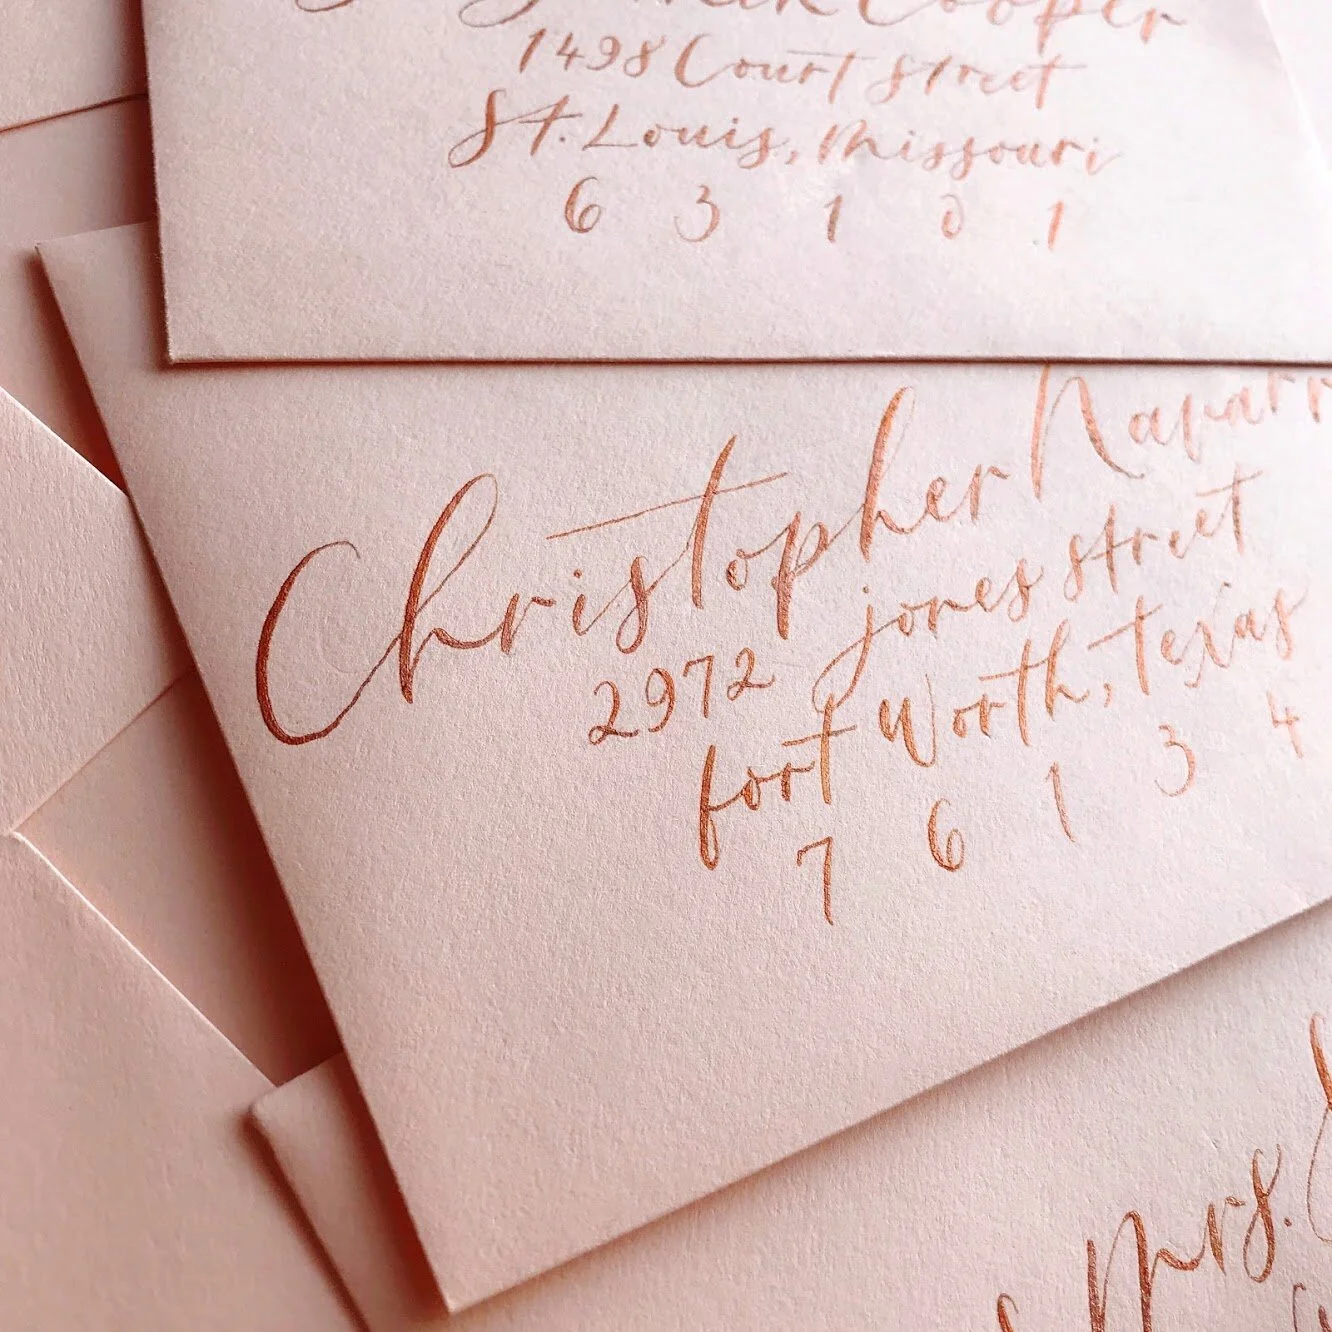 Cooper
1498 Court Street
St. Louis, Missouri
6 3 1 0 1
Christopher Navarr
2972 Jones Street
Fort Worth, Texas
7 6 1 3 4
Mrs.